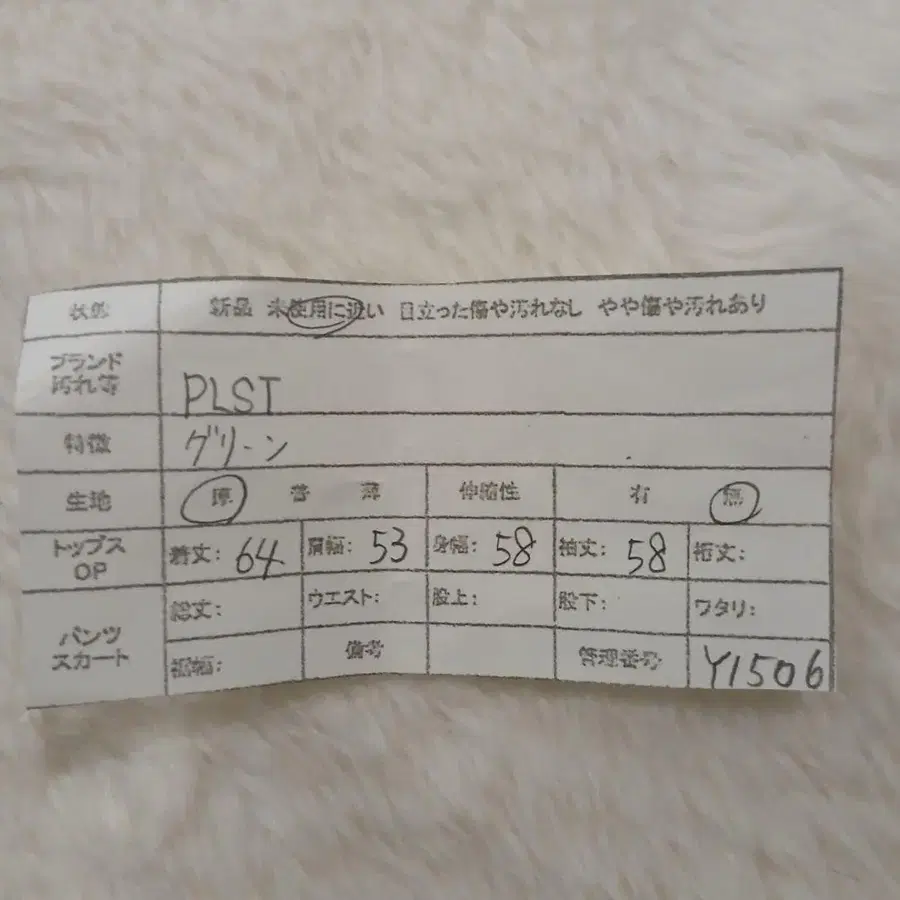 状態 新品 未使用に近い 目立った傷や汚れなし やや傷や汚れあり
ブランド
汚れ等 PLST
特徴 グリーン
生地 厚 普 薄 伸縮性 有 無
トップス
OP 着丈: 64 肩幅: 53 身幅: 58 袖丈: 58 裄丈:
パンツ
スカート 総丈: ウエスト: 股上: 股下: ワタリ:
裾幅: 備考 管理番号 Y1506